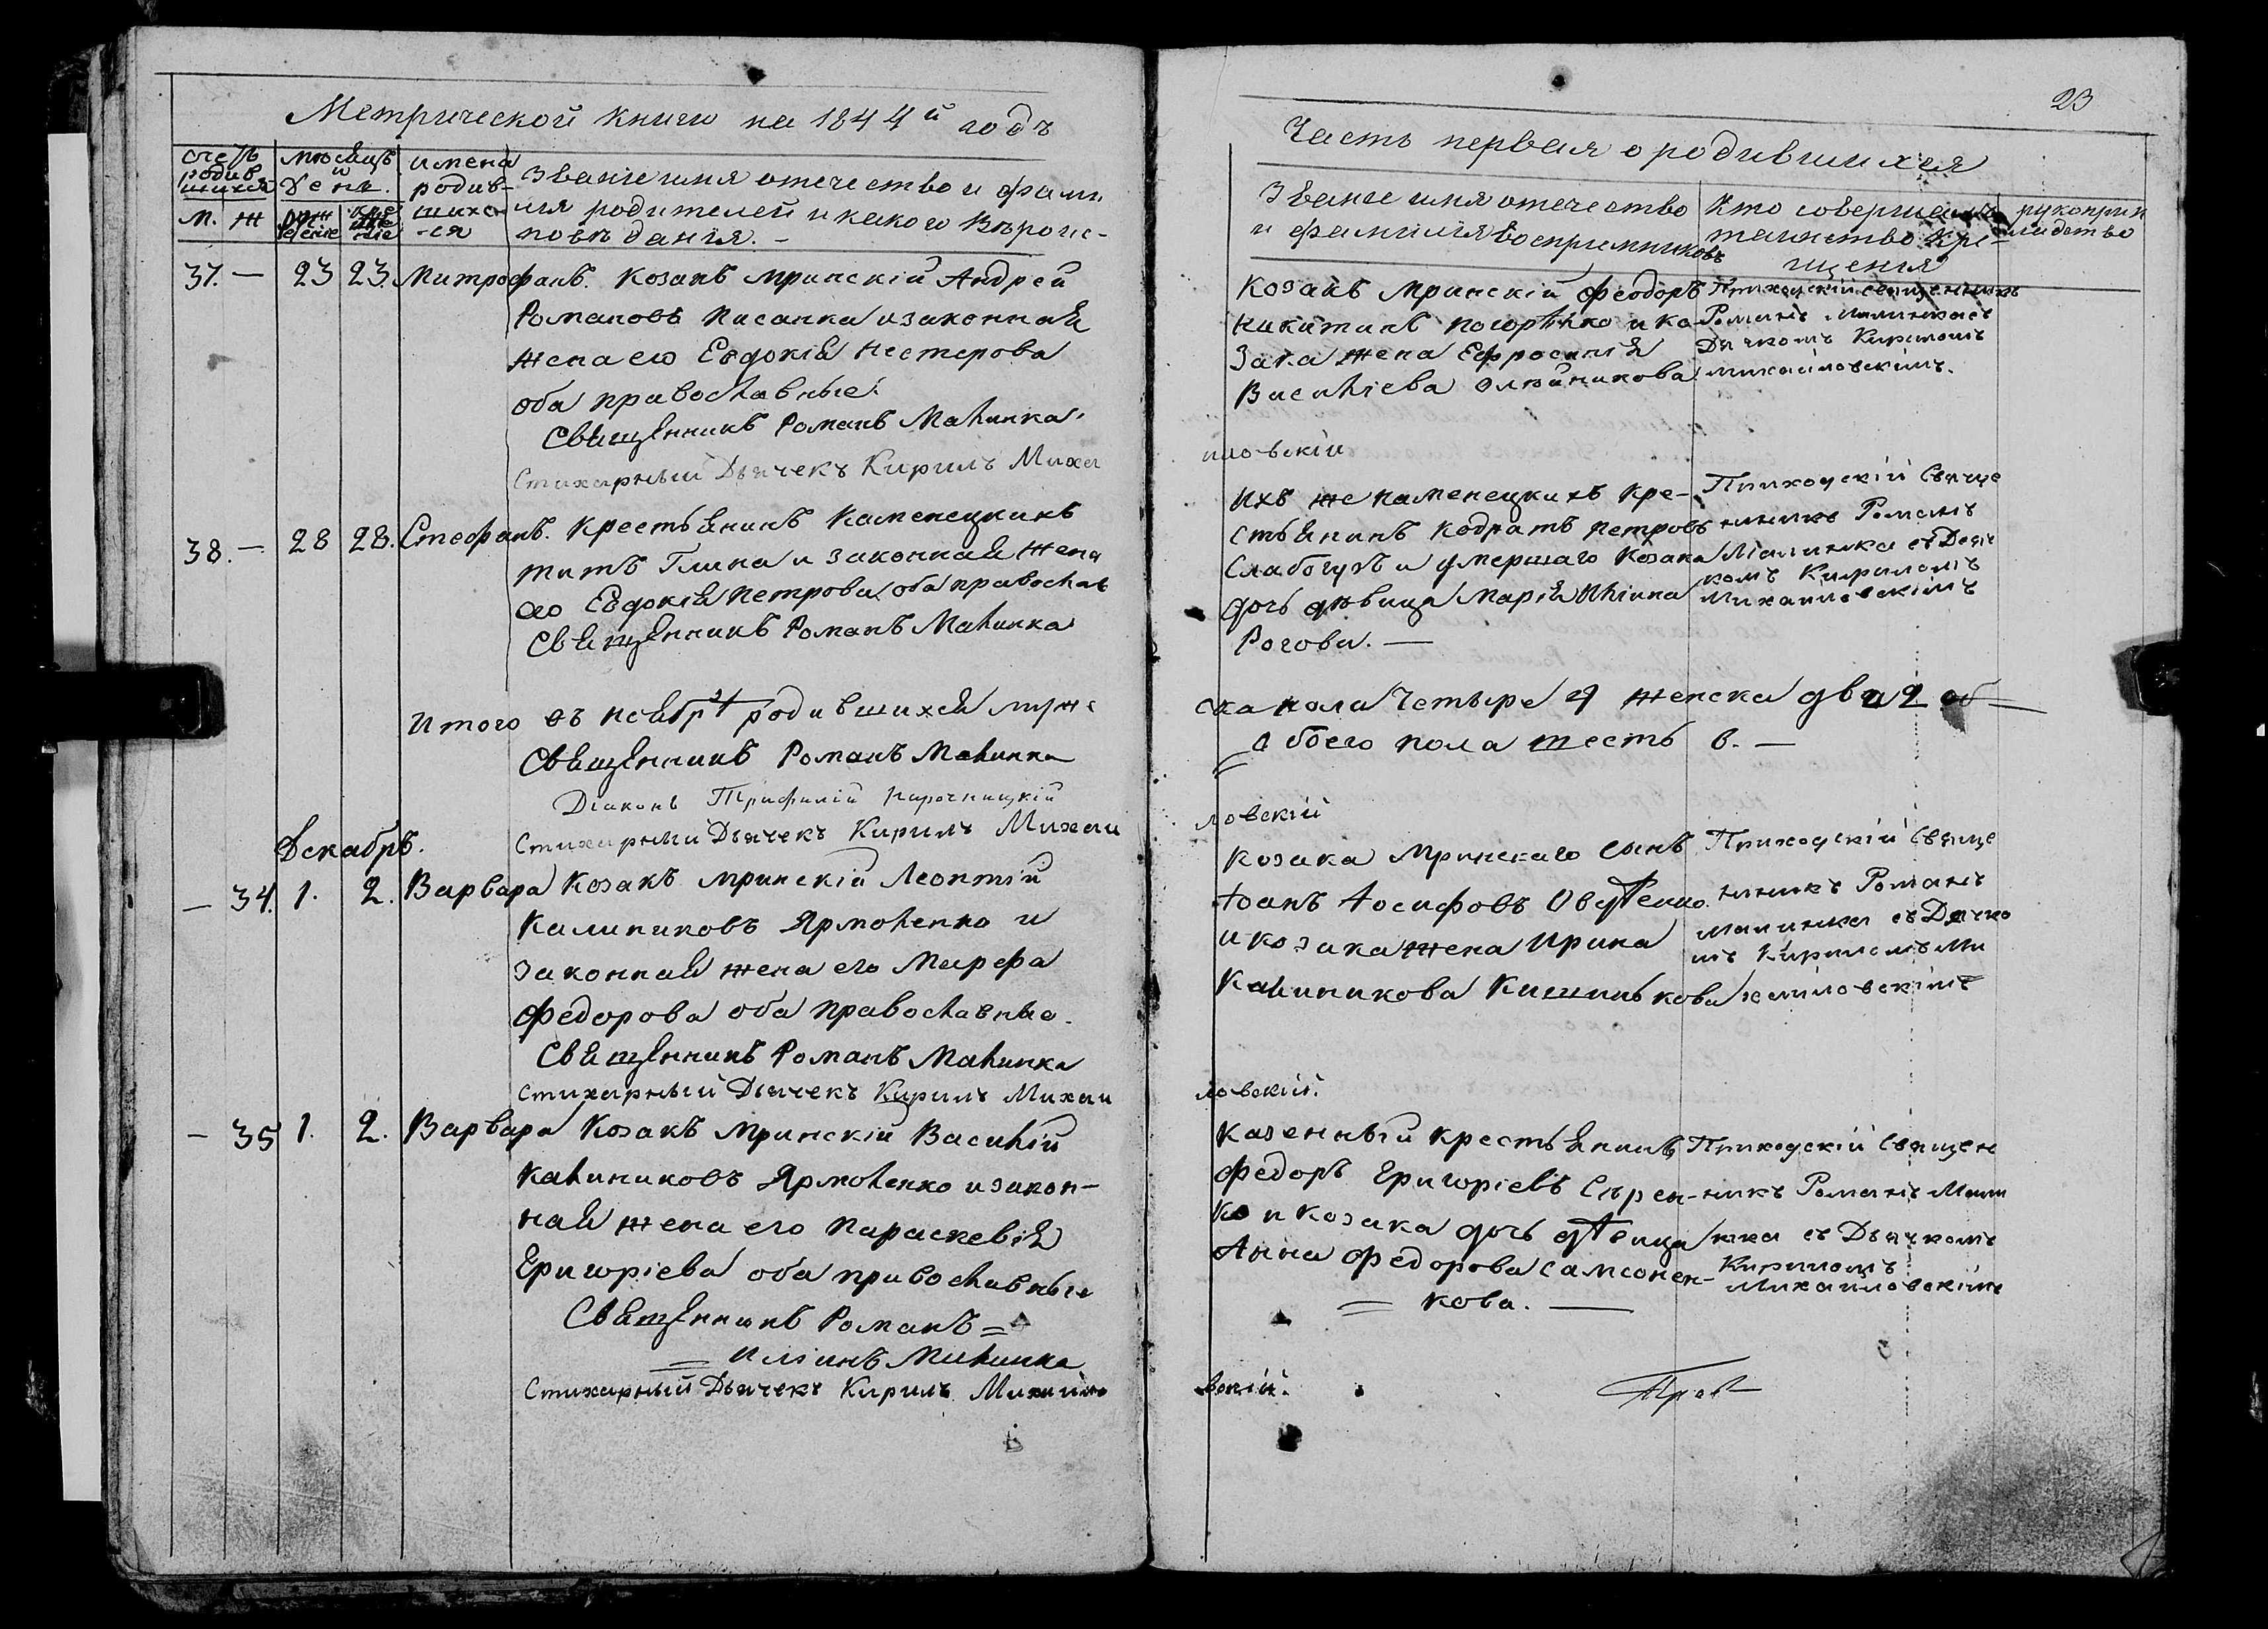 Метрической книги на 1844й годъ
счетъ родив шихся
мѣсяцъ и день.
имена родив- шихся -ся
М. Ж
рож деніе
кре ще ніе
Званіе имя отечество и фами
лія родителей и какого Вѣроис-
повѣданія. -
37. — 23 23. Митрофанъ. Козакъ мринскій Андрей
Романовъ Писанка и законная
жена его Евдокія Нестерова
оба православные.
Священникъ Романъ Малинка.
Стихарный Дьячекъ Кирилъ Михаи
38. — 28 28. Стефанъ. Крестьянинъ Каменецкихъ
титъ Глика и законная жена
его Евдокія Петрова оба православ
Священникъ Романъ Малинка
Итого въ ноябрѣ родившихся муже
Священникъ Романъ Малинка
Діаконъ Трифилій
Стихарный Дьячекъ Кирилъ Михаи
Декабрь.
— 34. 1. 2. Варвара Козакъ мринскій Леонтій
Калиниковъ Ярмоленко и
законная жена его Марфа
Федорова оба православные.
Священникъ Романъ Малинка
Стихарный Дьячекъ Кирилъ Михаи
— 35 1. 2. Варвара Козакъ Мринскій Василій
Калиниковъ Ярмоленко и закон-
ная жена его Параскевія
Григоріева оба православные
Священникъ Романъ =
= Иліинъ Малинка
Стихарный Дьячекъ Кирилъ Михайло
23
Часть первая о родившихся
Званіе имя отечество
и фамилія воспріемниковъ
Кто совершалъ
таинство кре-
щенія
рукоприк
ладство
Козакъ мринскій Феодоръ
Никитинъ Погорѣлко и ко
зака жена Ефросинія
Василіева Олѣйникова
Приходскій священникъ
Романъ Малинка съ
Дьячкомъ Кириломъ
Михайловскимъ.
иловскій
Ихъ же каменецкихъ кре-
стьянинъ Кодратъ Петровъ
Слабогузъ и умершаго Козака
дочь дѣвица Марія Иліина
Рогова. —
Приходскій Свяще
нникъ Романъ
Малинка съ Дьяч
комъ Кириломъ
Михаиловскімъ
ска пола четыре 4 женска два 2 об —
= Обоего пола шесть 6. —
ловскій
Козака Мринскаго сынъ
Іоанъ Іосифовъ
и козака жена Ирина
Калиникова Кишинькова
Приходскій Свяще
нникъ Романъ
Малинка съ Дьячко
мъ Кириломъ Ми
хаиловскімъ
ловскій.
Казенный крестьянинъ
Федоръ Григоріевъ Сѣрен-
ко и козака дочь дѣвица
Анна Федорова Самсонен-
= кова. —
Приходскій Священ
никъ Романъ Мали
нка съ Дьячкомъ
Кириломъ
Михаиловскімъ
вскій.